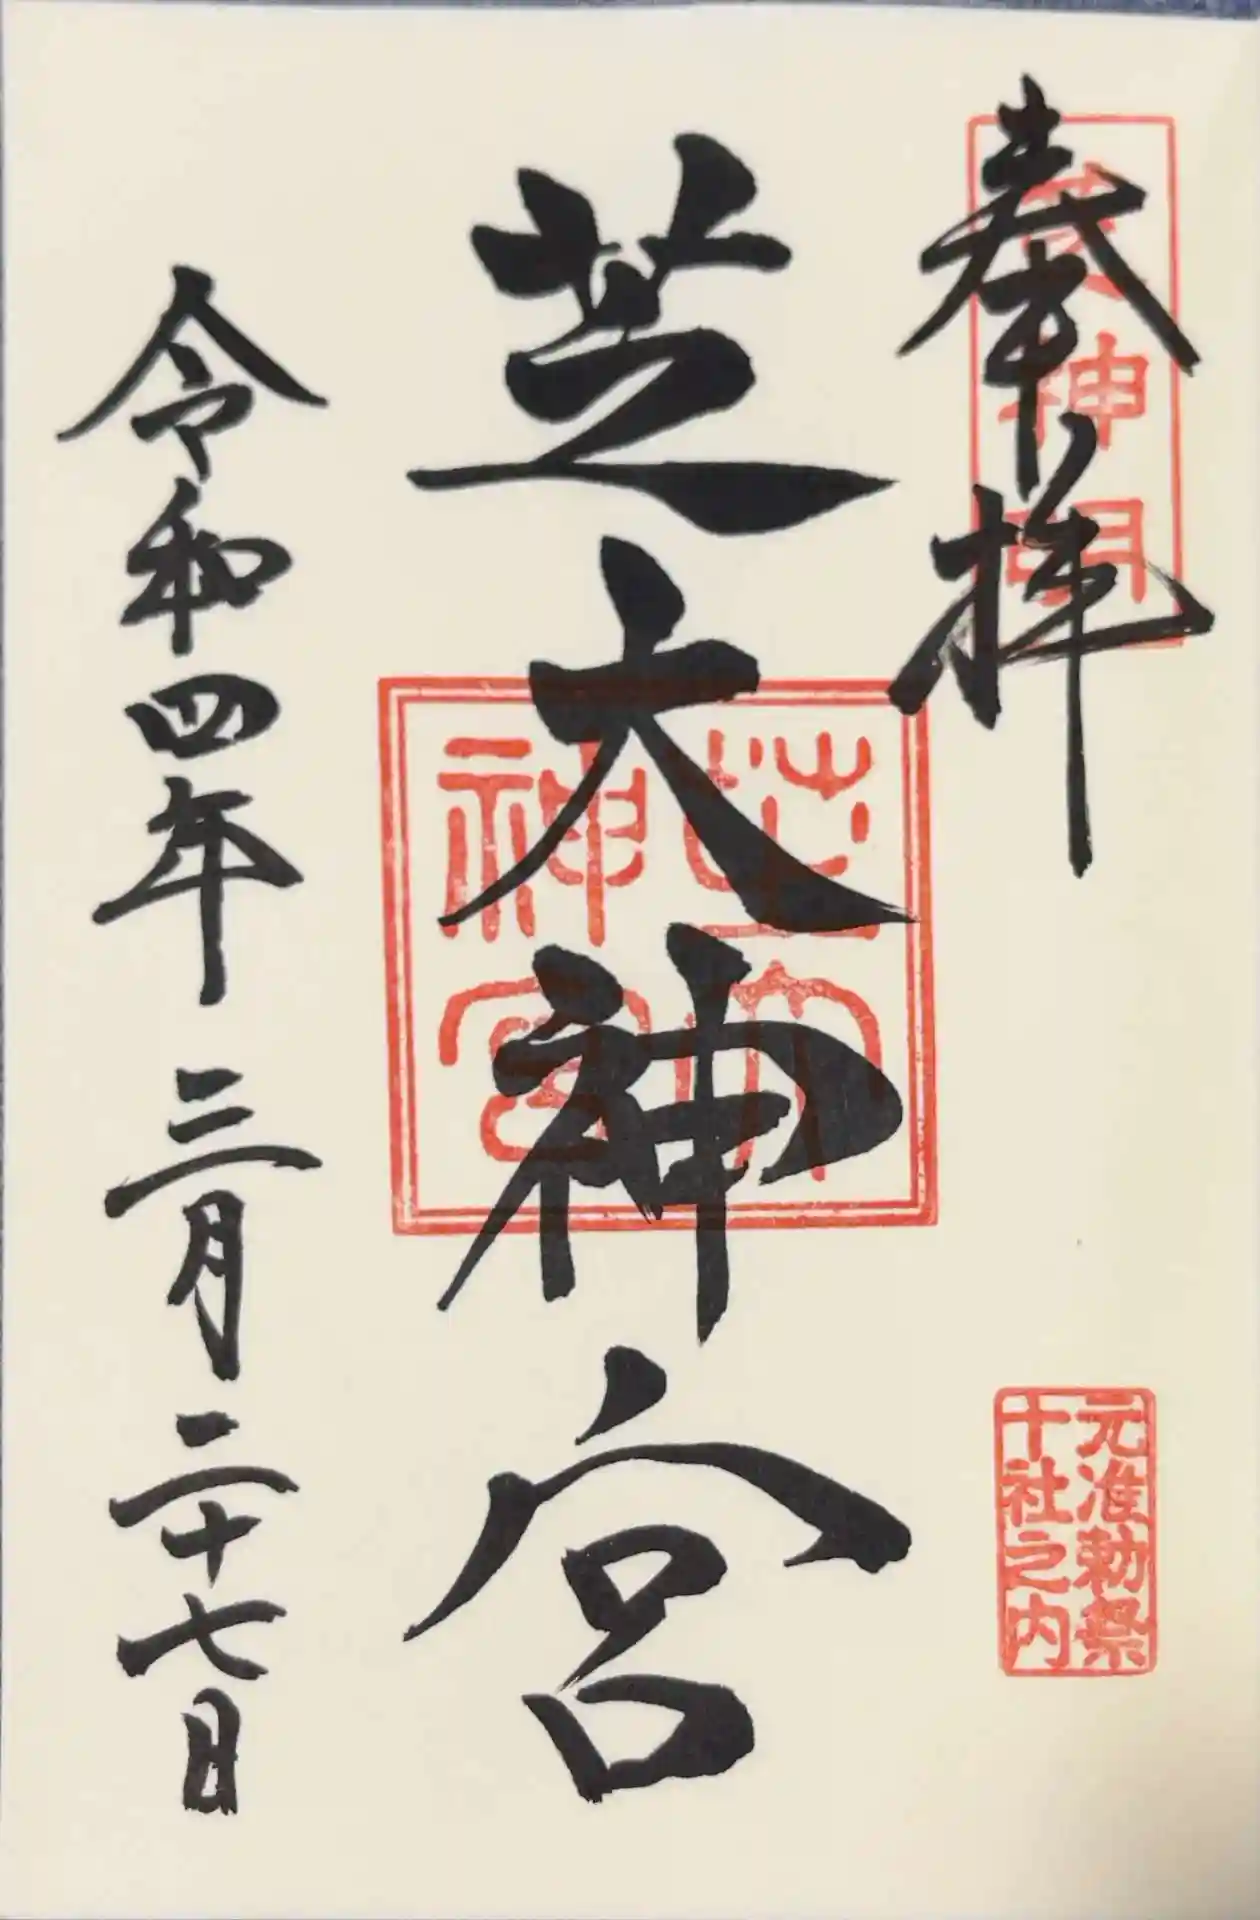 奉拝
芝神明
元准勅祭
十社之内
芝大神宮
芝大
神宮
令和四年三月二十七日